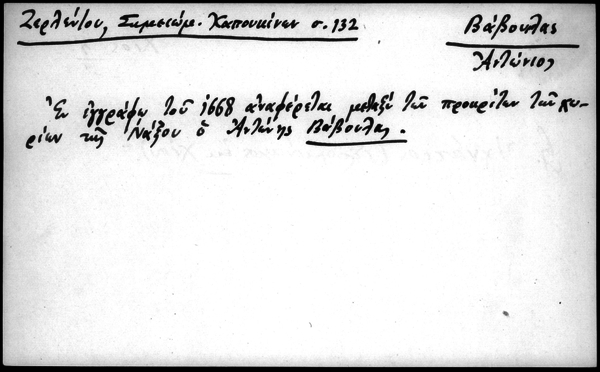 Ζερλέντου, Σημειώμ. Καπουκίνων σ. 132
Βάβουλας
Ἀντώνιος
Ἐν ἐγγράφῳ τοῦ 1668 ἀναφέρεται μεταξύ τῶν προκρίτων τῶν χω-
ρίων τῆς Νάξου ὁ Ἀντώνης Βάβουλας.